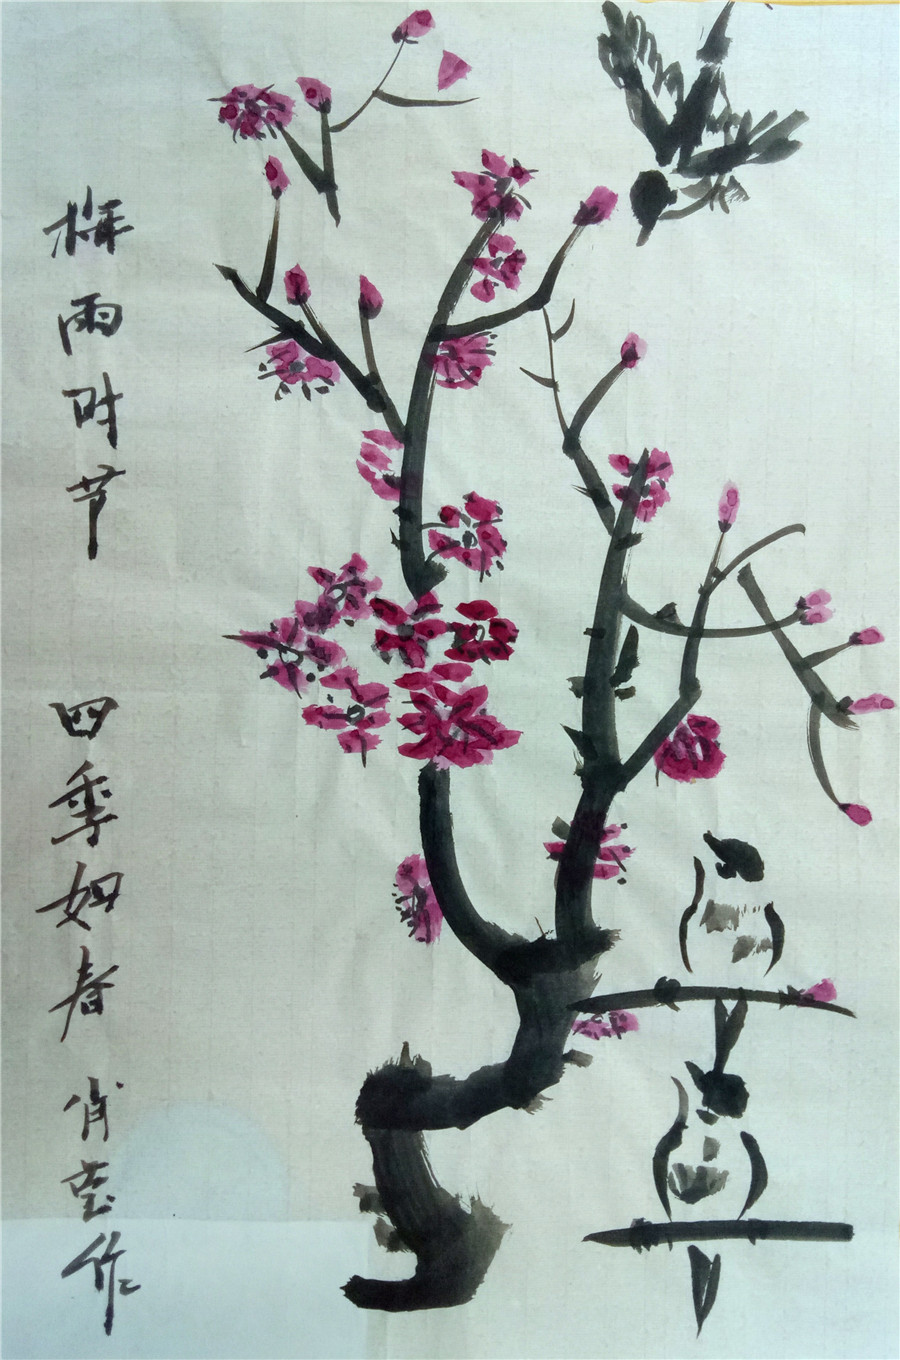 梅雨时节 四季如春 肖莹作